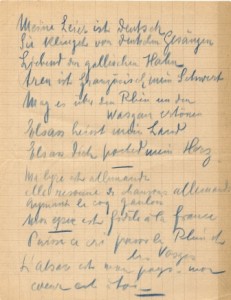 Meine Leier ist deutsch
Sie klinget von deutschen Gesängen
Liebend den gallischen Hahn
treu ist französisch mein Schwert
Mag es über den Rhein und den
Wasgau ertönen
Elsass heisst mein Land
Elsass dich pochet mein Herz
Ma lyre est allemande
elle résonne de chansons allemandes
le coq gaulois
mon épée est fidèle à la france
Puisse-a
le Rhin et
les Vosges
L'alsace est mon pays, mon
coeur est à toi